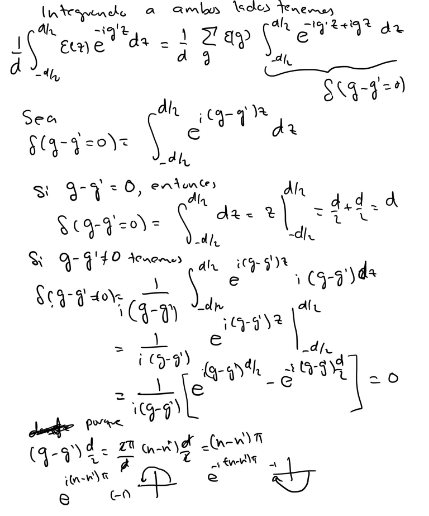 Integrando a ambos lados tenemos
1/d ∫_{-d/2}^{d/2} ε(z) e^{-ig'z} dz = 1/d Σ_g ε(g) ∫_{-d/2}^{d/2} e^{-ig'z+igz} dz
δ(g-g'=0)
Sea
δ(g-g'=0) = ∫_{-d/2}^{d/2} e^{i(g-g')z} dz
Si g-g' = 0, entonces
δ(g-g'=0) = ∫_{-d/2}^{d/2} dz = z |_{-d/2}^{d/2} = d/2 + d/2 = d
Si g-g'≠0 tenemos
δ(g-g'≠0) = 1/i(g-g') ∫_{-d/2}^{d/2} e^{i(g-g')z} i(g-g')dz
= 1/i(g-g') e^{i(g-g')z} |_{-d/2}^{d/2}
= 1/i(g-g') [e^{i(g-g')d/2} - e^{-i(g-g')d/2}] = 0
porque
(g-g') d/2 = 2π/d (n-n') d/2 = (n-n')π
e^{i(n-n')π} (-1) e^{-i(n-n')π} -1